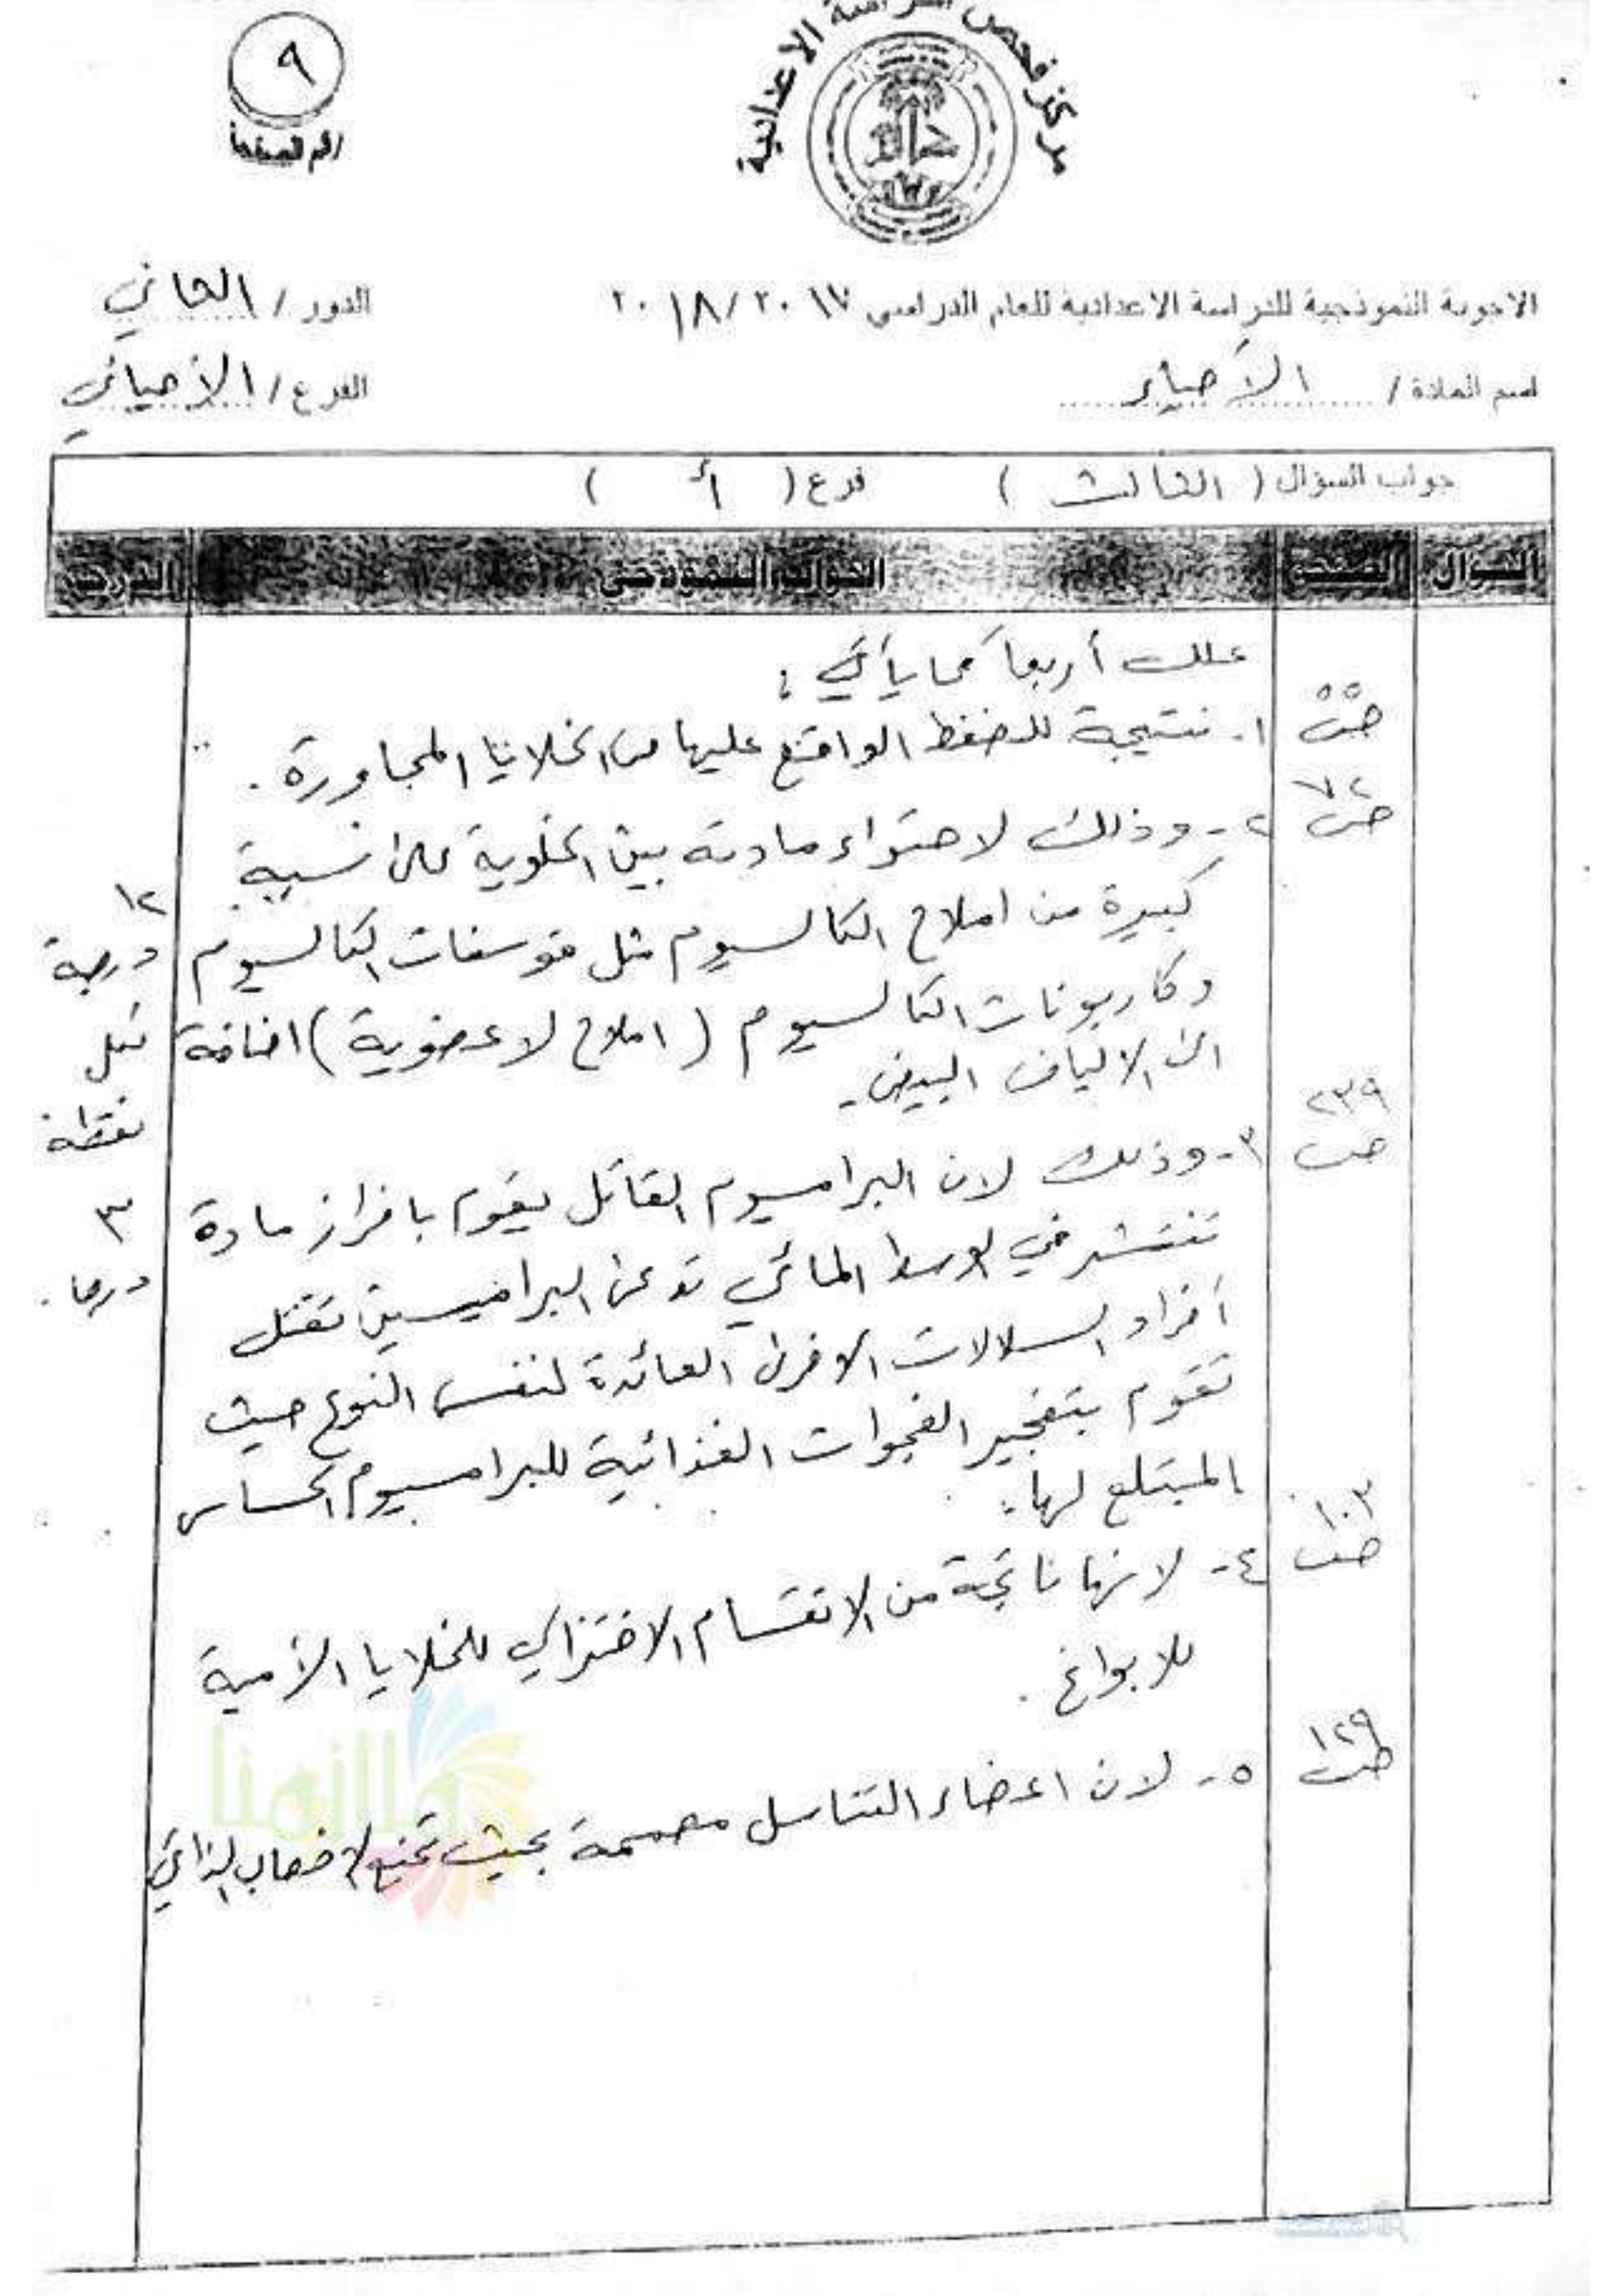 مركز فحص الدراسة الاعدادية
٩
رقم الصفحة
الاجوبة النموذجية للدراسة الاعدادية للعام الدراسي ٢٠١٧ / ٢٠١٨
الدور / الثاني
اسم المادة / الأحياء
الفرع / الأحيائي
جواب السؤال ( الثالث ) فرع ( أ )
السؤال الصفحة الجواب النموذجي الدرجة
علل أربعاً مما يأتي :
ص٥٥ ١- نتيجة للضغط الواقع عليها من الخلايا المجاورة .
ص٧٢ ٢- وذلك لاحتواء مادته بين الخلوية على نسبة
كبيرة من املاح الكالسيوم مثل فوسفات الكالسيوم
وكاربونات الكالسيوم ( املاح لا عضوية ) اضافة
الى الالياف البيض .
١٢
درجة
لكل
نقطة
٣
درجات
ص٢٣٩ ٣- وذلك لان البراميسيوم القاتل يقوم بافراز مادة
تنتشر في الوسط المائي تدعى البراميسين تقتل
أفراد السلالات الاخرى العائدة لنفس النوع حيث
تقوم بتفجير الفجوات الغذائية للبراميسيوم الحساس
المبتلع لها .
ص١٠٣ ٤- لانها ناتجة من الانقسام الاختزالي للخلايا الأمية
للابواغ .
ص١٢٩ ٥- لان اعضاء التناسل مصممة بحيث تمنع الاخصاب الذاتي
ملازمنا